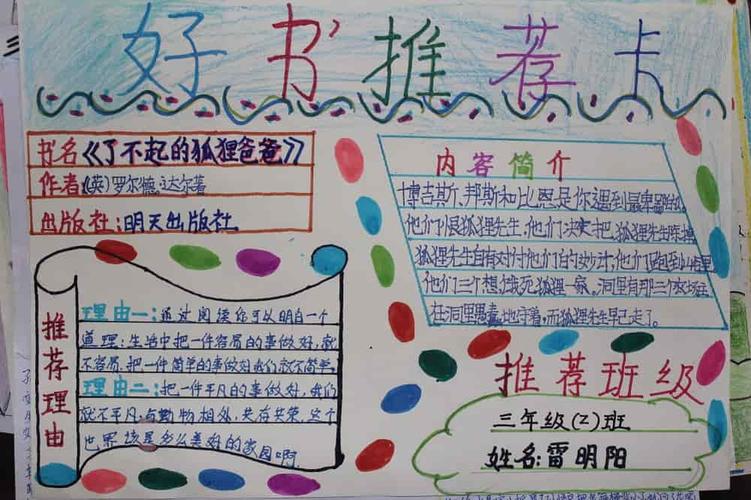 好书推荐卡
书名《了不起的狐狸爸爸》
作者:(英)罗尔德.达尔著
出版社:明天出版社
内容简介
博吉斯、邦斯和比恩是你遇到最卑鄙的
他们恨狐狸先生,他们决定把狐狸先生
狐狸先生自有对付他们的妙计,他们跑到山
他们三个想饿死狐狸一家。洞里有那三个
在洞里愚蠢地守着,而狐狸先生早已走了。
推荐理由
理由一:通过阅读你可以明白一个
道理:生活中把一件容易的事做好,就
不容易,把一件简单的事做好我们就不简单
理由二:把一件平凡的事做好,我们
就不平凡,与动物相处,共存共荣,这个
世界该是多么美好的家园啊
推荐班级
三年级(2)班
姓名:雷明阳